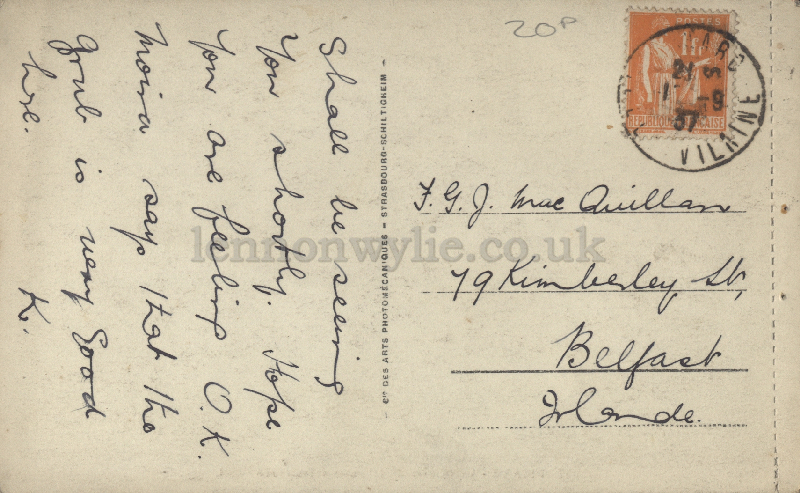 20P
POSTES
1F
REPUBLIQUE FRANÇAISE
GARE
21
1 -9
37
VILMINE
Shall be seeing
you shortly. Hope
you are feeling O.K.
Moira says that the
grub is very good
here.
K.
Cie DES ARTS PHOTOMÉCANIQUES - STRASBOURG-SCHILTIGHEIM -
F. G. J. Mac Quillan
79 Kimberley St,
Belfast
Irlande.
lennonwylie.co.uk